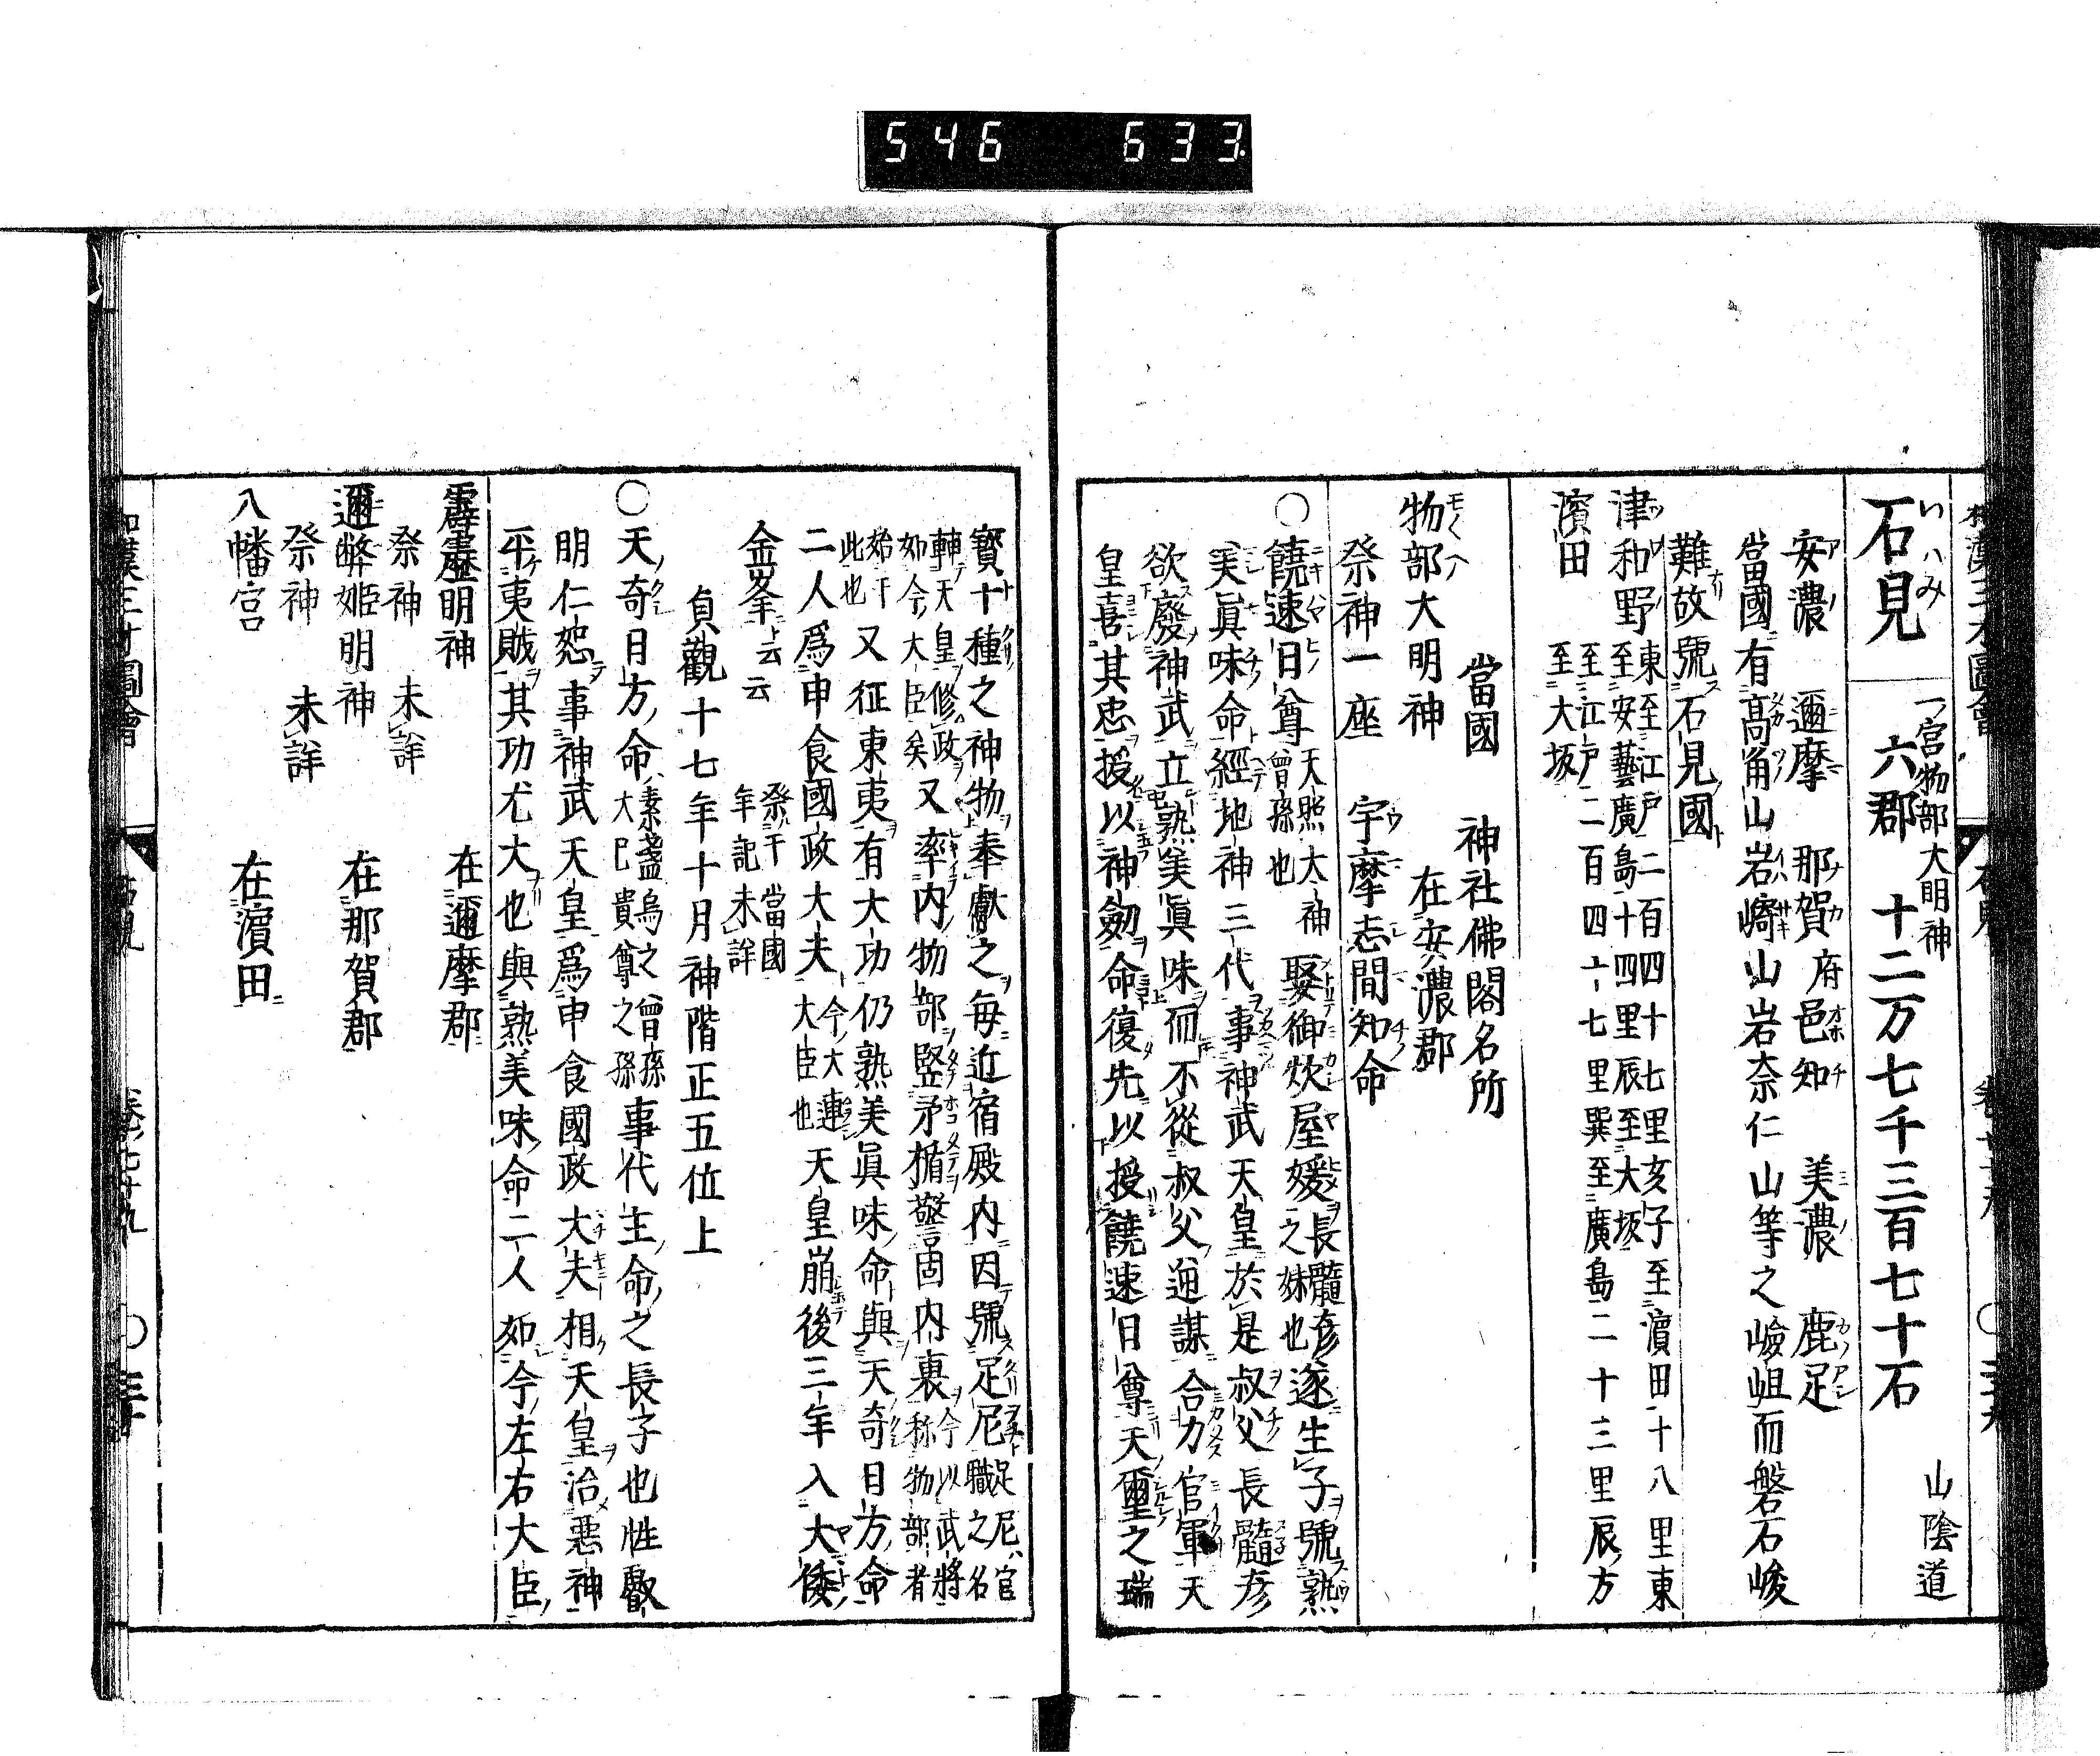 546 633
石見 一宮物部大明神 六郡 十二万七千三百七十石 山陰道
安濃 邇摩 那賀府 邑知 美濃 鹿足
當國有高角山岩崎山岩奈仁山等之嶮岨而磐石峻
難故號石見國
津和野 東至江戸二百四十七里亥子至濵田十八里東
至安藝廣島十四里辰至大坂
濵田 至江戸二百四十七里巽至廣島二十三里辰方
至大坂
當國 神社佛閣名所
物部大明神 在安濃郡
祭神一座 宇摩志間知命
〇饒速日尊 天照大神曾孫也 娶御炊屋媛 長髓彦之妹也 遂生子號熟
美眞味命經地神三代事神武天皇於是叔父長髓彦
欲廢神武立熟美眞味而不從叔父逆謀合力官軍天
皇喜其忠授以神劔命復先以授饒速日尊天璽之瑞
寳十種之神物奉獻之毎近宿殿内因號足尼 足尼官職之名
輔天皇修政如今大臣矣 又率内物部竪矛楯警固内裏 今以武將称物部者
始于此也 又征東夷有大功仍熟美眞味命與天奇日方命
二人爲申食國政大夫 今大連大臣也 天皇崩後三年入大倭
金峯云云 祭于當國年記未詳
貞觀十七年十月神階正五位上
〇天奇日方命 素盞烏之曾孫大巳貴尊之孫 事代主命之長子也性叡
明仁恕事神武天皇爲申食國政大夫相天皇治惡神
平夷賊其功尤大也與熟美味命二人如今左右大臣
霹靂明神 在邇摩郡
祭神 未詳
邇弊姫明神 在那賀郡
祭神 未詳
八幡宮 在濵田